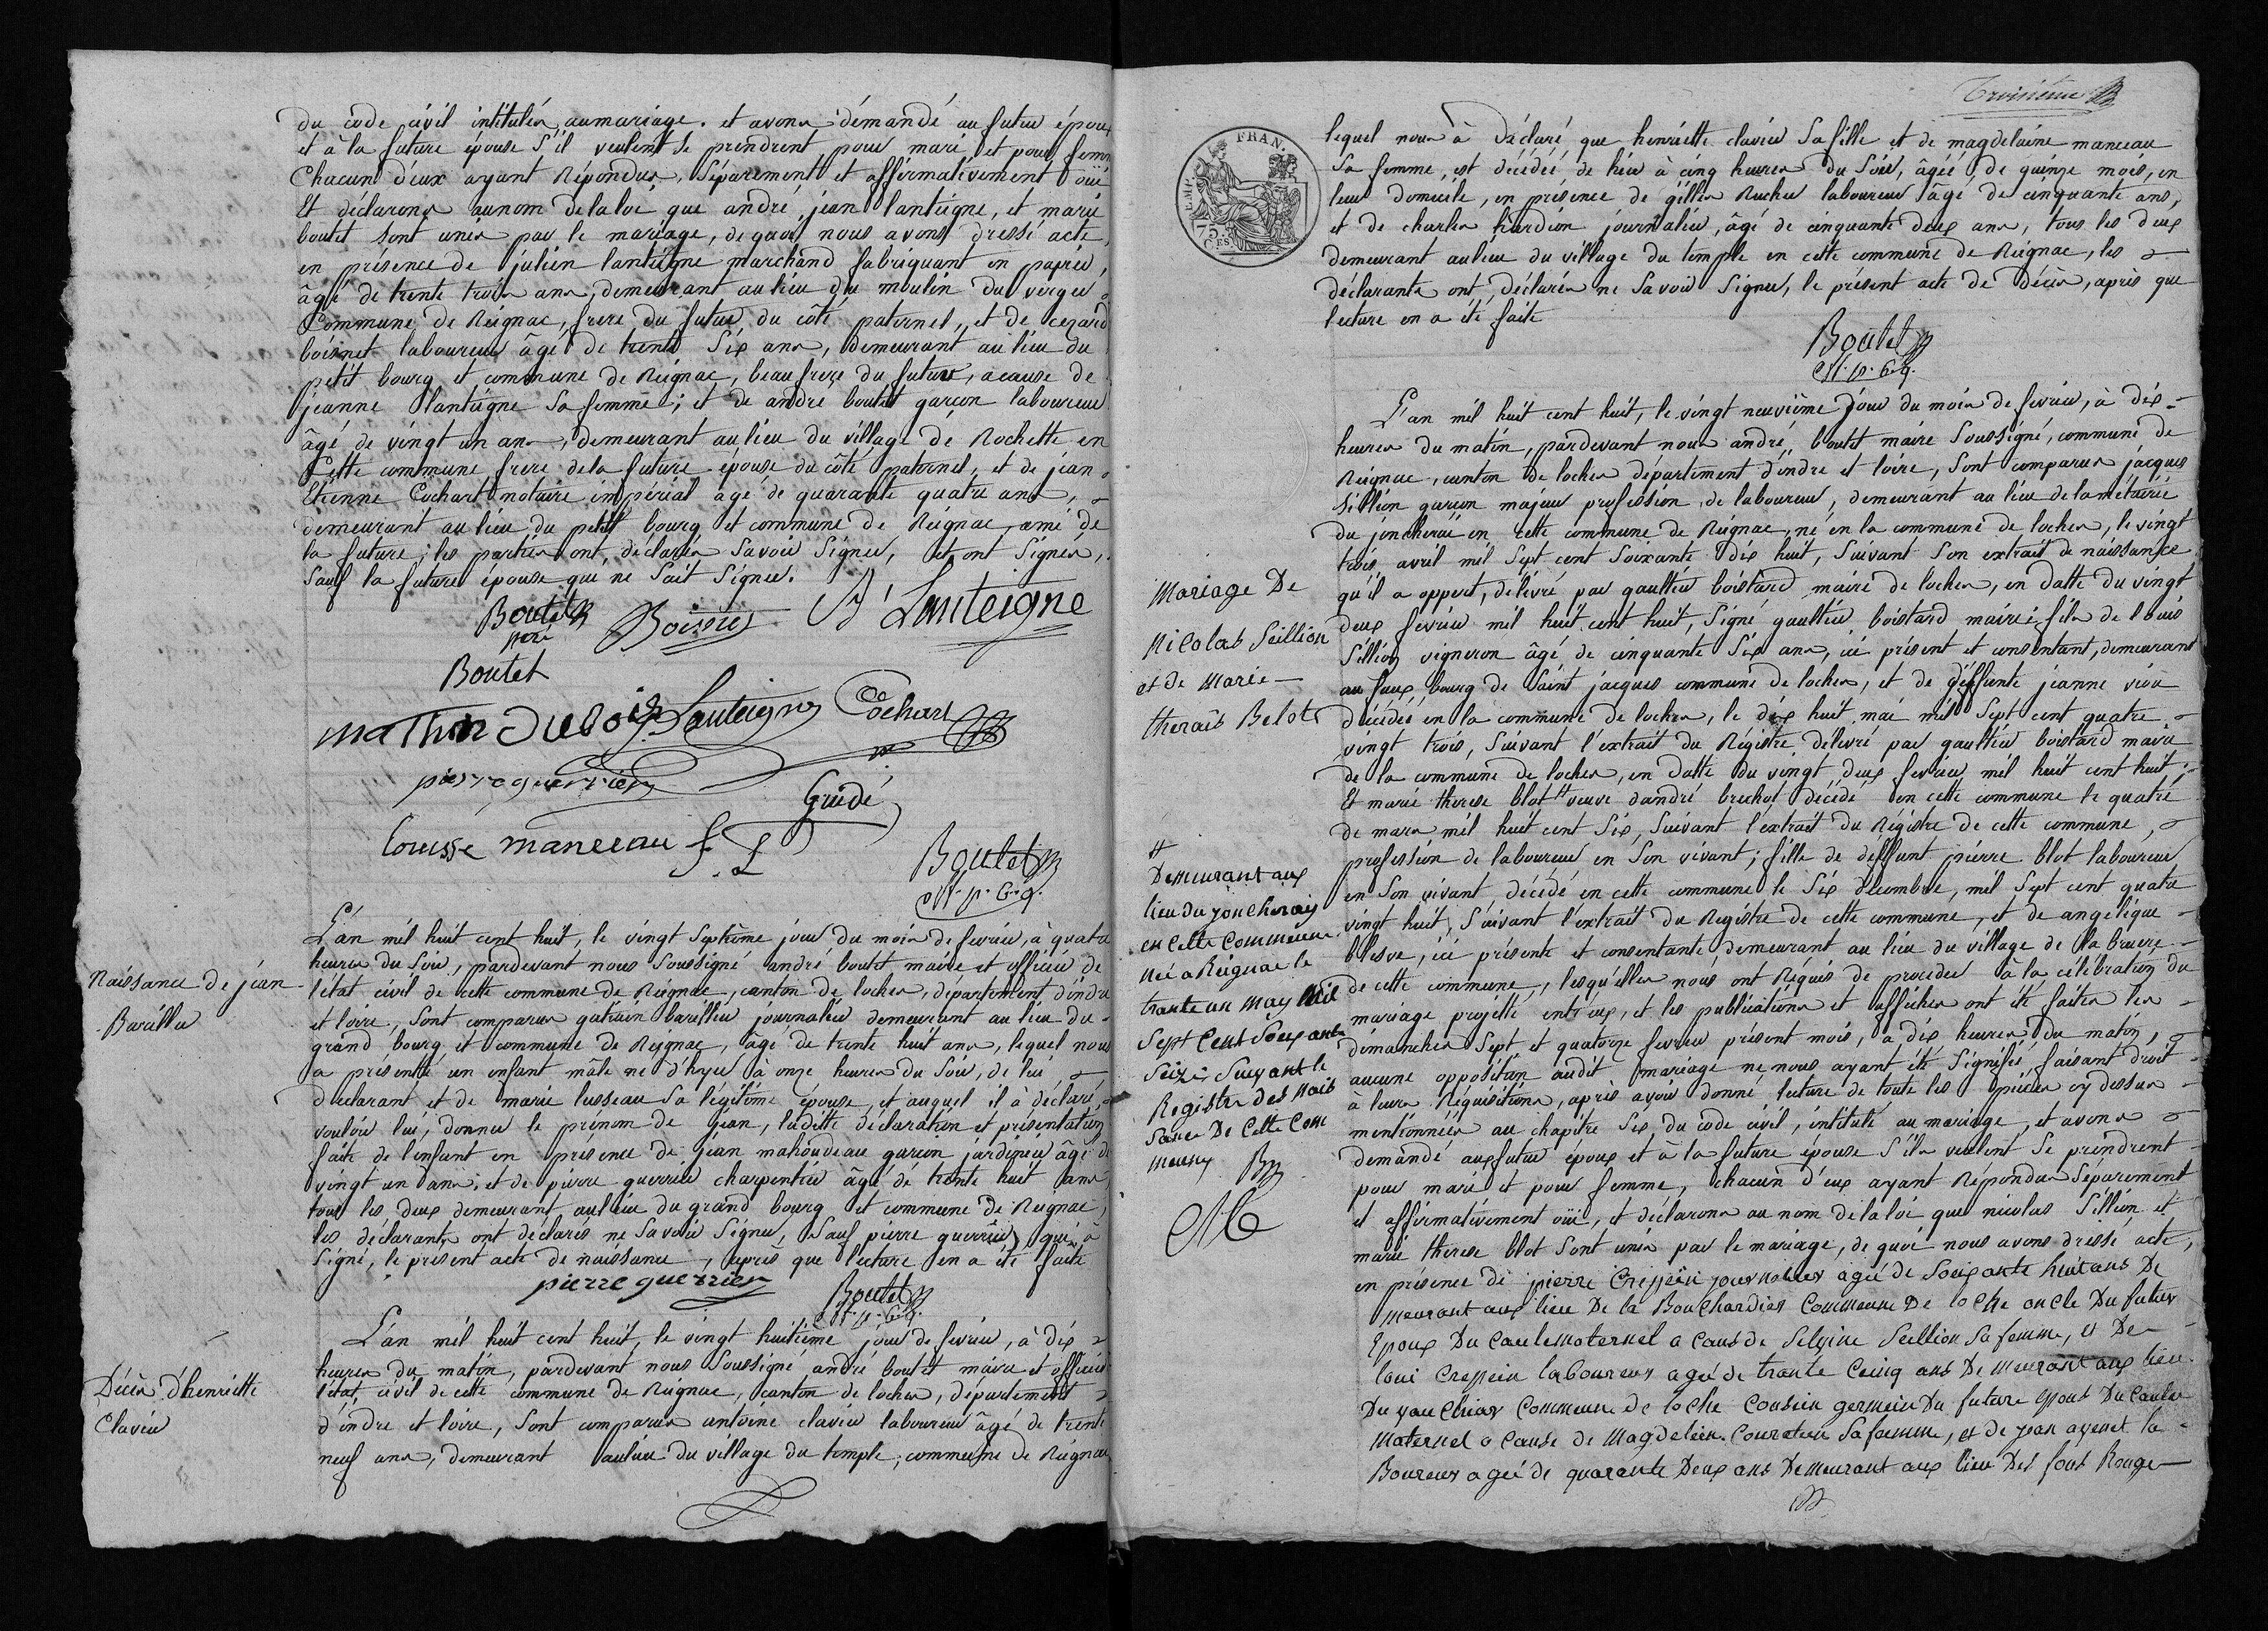 du code civil intitulés au mariage. et avons démandé au futur époux
et à la future épouse s'il veulent se prendrent pour mari et pour femme
Chacun deux ayant Répondus, Séparément et affirmativement oüi
Et déclarons au nom de la loi que andré jean lanteigne, et marie
boutet sont unis par le mariage, de quoi nous avons dressé acte,
en présence de julien lanteigne marchand fabriquant en papier,
âgé de trente trois ans, demeurant au lieu du moulin du verger
Commune de Reignac, frere du futur du côté paternel, et de cezard
boisnet laboureur âgé de trente Six ans, demeurant au lieu du
petit bourg et commune de Reignac, beau frere du futur, acause de
jeanne lanteigne Sa femme; et de andré boutet garçon laboureur
âgé de vingt un ans, demeurant au lieu du village de Rochette en
Cette commune frere de la future épouse du côté paternel, et de jean
Etienne Cochart notaire impérial âgé de quarante quatre ans,
demeurant au lieu du petit bourg et commune de Reignac, ami de
la future; les parties ont déclarés Savoir Signer, et ont Signés,
Sauf la future épouse qui ne Sait Signer.
Boutet
peré
Boisnet
A Lanteigne
Boutet
mathin Dubois
Lanteigne
Cochart
pierre guerrier
Gredé
Couisse manceau f. L
Boutet
M. p. 6. g.
Naissance de jean
Barillu
L'an mil huit cent huit, le vingt Septième jour du mois de fevrier, à quatre
heures du Soir, pardevant nous Soussigné andré boutet maire et officier de
l'état civil de cette commune de Reignac, canton de loches, département d'indre
et loire, Sont comparus gatien barillier journalier demeurant au lieu du
grand bourg et commune de Reignac, âgé de trente huit ans, lequel nous
a présenté un enfant mâle né d'hyer à onze heures du Soir, de lui
déclarant et de marie lusseau Sa légitime épouse, et auquel il à déclaré
vouloir lui donner le prénom de jean, laditte déclaration et présentation
faite de l'enfant en présence de jean mahoudeau garçon jardinier âgé de
vingt un ans, et de pierre guerrier charpentier âgé de trente huit ans
tous les deux demeurant au lieu du grand bourg et commune de Reignac,
les déclarants ont déclarés ne Savoir Signer, Sauf pierre guerrier qui a
Signé, le présent acte de naissance, après que lecture en a été faite
pierre guerrier
Boutet
M. p. 6. g.
Décès d'henriette
Clavier
L'an mil huit cent huit, le vingt huitième jour de fevrier, à dix
heures du matin, pardevant nous Soussigné andré boutet maire et officier
l'état civil de cette commune de Reignac, canton de loches, département
d'indre et loire, Sont comparus antoine clavier laboureur âgé de trente
neuf ans, demeurant au lieu du village du temple, commune de Reignac
Troisieme
FRAN.
75 CES
lequel nous à Déclaré que henriette clavier Sa fille et de magdelaine manceau
Sa femme, est décédée, de hier à cinq heures du Soir, âgée, de quinze mois, en
leur domicile, en présence de gilles Rucher laboureur âgé de cinquante ans,
et de charles hardion journalier, âgé de cinquante deux ans, tous les deux
demeurant au lieu du village du temple en cette commune de Reignac, les
déclarants ont déclarés ne Savoir Signer, le présent acte de Décès, après que
lecture en a été faite
Boutet
M. p. 6. g.
Mariage De
Nicolas Seillion
et de Marie
therais Belots
L'an mil huit cent huit, le vingt neuvième Jour du mois de fevrier, à dix
heures du matin, pardevant nous andré boutet maire Soussigné, commune de
Reignac, canton de loches département d'indre et loire, Sont comparus jacques
Sillion garçon majeur profession de laboureur, demeurant au lieu de la métairie
du joncherai en cette commune de Reignac, né en la commune de loches, le vingt
trois avril mil Sept cent Soixante dix huit, Suivant Son extrait de naissance
qu'il a apporté, délivré par gaultier boistard maire de loches, en datte du vingt
deux fevrier mil huit cent huit, Signé gaultier boistard maire, fils de louis
Sillion vigneron âgé de cinquante Six ans, ici présent et consentant, demeurant
au faux bourg de Saint jacques commune de loches, et de deffunte jeanne viou
décédée en la commune de loches, le dix huit mai mil Sept cent quatre
vingt trois, Suivant l'extrait du Régistre délivré par gaultier boistard maire
de la commune de loches, en datte du vingt deux fevrier mil huit cent huit;
Et marie therese blot # veuve d'andré brechot décédé en cette commune le quatre
de mars mil huit cent Six, Suivant l'extrait du Régistre de cette commune,
profession de laboureur en Son vivant; fille de deffunt pierre blot laboureur
en Son vivant décédé en cette commune le Six décembre, mil Sept cent quatre
vingt huit, Suivant l'extrait du Régistre de cette commune, et de angélique
blesve, ici présente et consentante demeurant au lieu du village de la bruere
de cette commune, lesquelles nous ont Réquis de proceder à la célébration du
mariage projetté entr'eux, et les publications et affiches ont été faites les
dimanches Sept et quatorze fevrier présent mois, à dix heures du matin,
aucune opposition audit mariage ne nous ayant été Signifié, faisant droit
à leurs Réquisitions, après avoir donné lecture de toute les pièces cy dessus
mentionnées au chapitre Six, du code civil, intitulé au mariage, et avons
demandé aux futur epoux et à la future épouse S'ils veulent Se prendrent
pour mari et pour femme, chacun d'eux ayant Répondus Séparement
et affirmativement oüi, et déclarons au nom de la loi que nicolas Sillion et
marie therese blot Sont unis par le mariage, de quoi nous avons dréssé acte,
en présence de pierre Creppin journalier agée de Soixante huit ans De
meurant aux lieu De la Bouchardier Commune De loche oncle Du futur
Epoux Du caule maternel a caus de Selvine Seillion Sa femme, et De
loui Creppin laboureur agée de trante Cinq ans De meurant aux lieu
Du yauchiar Commune de loche Cousien germein Du future Epous Du caulee
Maternel a Cause de Magdelein Couratin Sa femme, et de jean avenet la
Boureur agée de quarante Deux ans Demeurant aux lieu Des fous Rouge
#
Demeurant aux
lieu Du joncherais
en Cette Commune
née a Reignac le
trante un may Mil
Sept Cent Soixante
Seize Suivant le
Registre des Nais
sance De Cette Com
mune